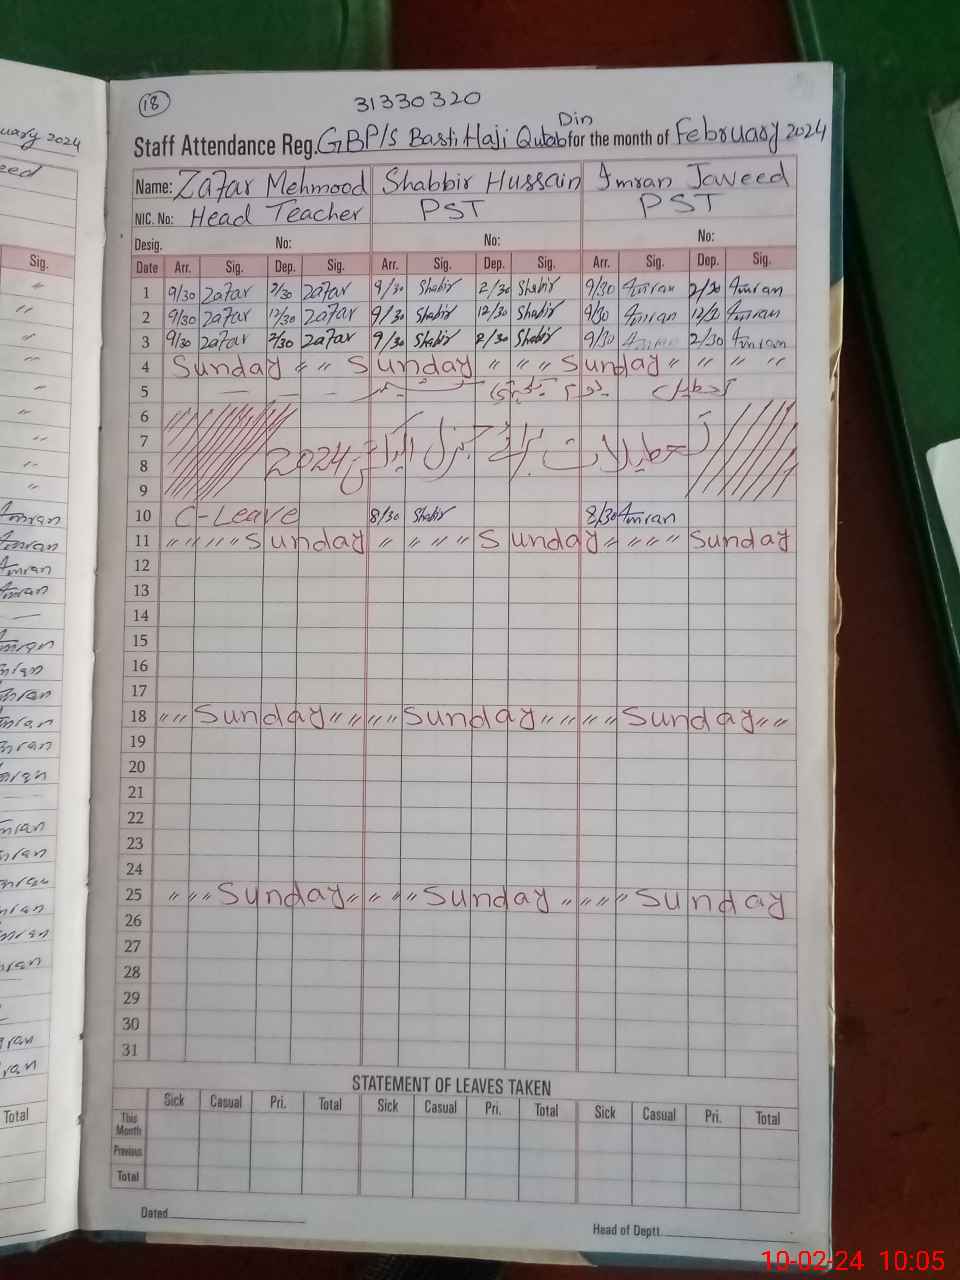 uary 2024
eed
Sig.
Total
18
31330320
Staff Attendance Reg. GBP/S Basti Haji Qutab Din for the month of February 2024
Name: Zafar Mehmood Shabbir Hussain Imran Javeed
NIC. No: Head Teacher PST PST
Desig. No: No: No:
Date Arr. Sig. Dep. Sig. Arr. Sig. Dep. Sig. Arr. Sig. Dep. Sig.
1 9/30 Zafar 2/30 Zafar 9/30 Shabir 2/30 Shabir 9/30 Imran 2/30 Imran
2 9/30 Zafar 12/30 Zafar 9/30 Shabir 12/30 Shabir 9/30 Imran 12/30 Imran
3 9/30 Zafar 2/30 Zafar 9/30 Shabir 2/30 Shabir 9/30 Imran 2/30 Imran
4 Sunday " " Sunday " " " Sunday " " " "
5 تعطیل یوم یکجہتی کشمیر
6
7 تعطیلات برائے جنرل الیکشن 2024
8
9
10 C-Leave 8/30 Shabir 8/30 Imran
11 " " " " " Sunday " " " " " Sunday " " " " Sunday
12
13
14
15
16
17
18 " " Sunday " " " " Sunday " " " " " Sunday " "
19
20
21
22
23
24
25 " " " Sunday " " " " " Sunday " " " " " Sunday
26
27
28
29
30
31
STATEMENT OF LEAVES TAKEN
Sick Casual Pri. Total Sick Casual Pri. Total Sick Casual Pri. Total
This Month
Previous
Total
Dated
Head of Deptt.
10-02-24 10:05